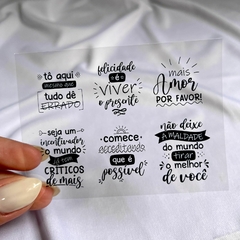 tô aqui
mesmo que
tudo dê
ERRADO
felicidade
é
viver
o presente
mais
Amor
POR FAVOR!
seja um
incentivador
o mundo
já tem
CRÍTICOS
de mais
comece
acreditando
que é
possível
não deixe
A MALDADE
do mundo
tirar
o melhor
de você